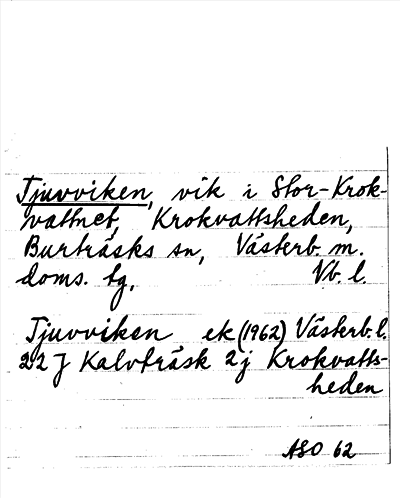 Tjuvviken, vik i Stor-Krok-
vattnet, Krokvattsheden,
Burträsks sn, Västerb. m.
doms. tg, Vb. l.
Tjuvviken ek (1962) Västerb. l.
22 J Kalvträsk 2 j Krokvatts-
heden
ASO 62